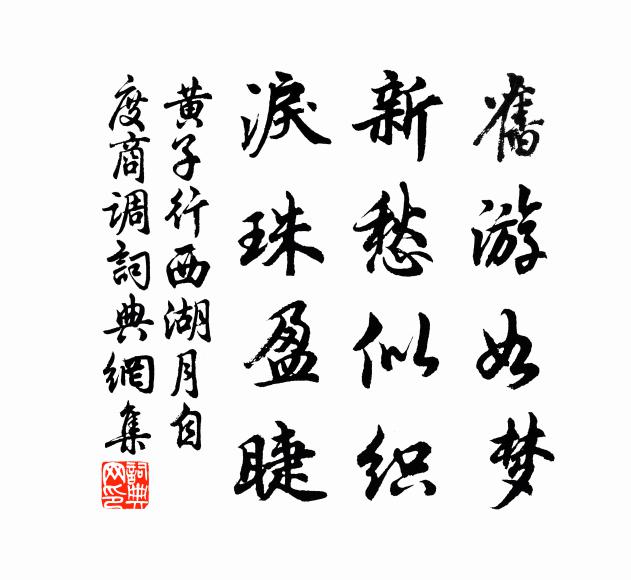 舊游如梦
新愁似织
淚珠盈睫
黄子行西湖月自
度商调詞典網集
詞典
网印